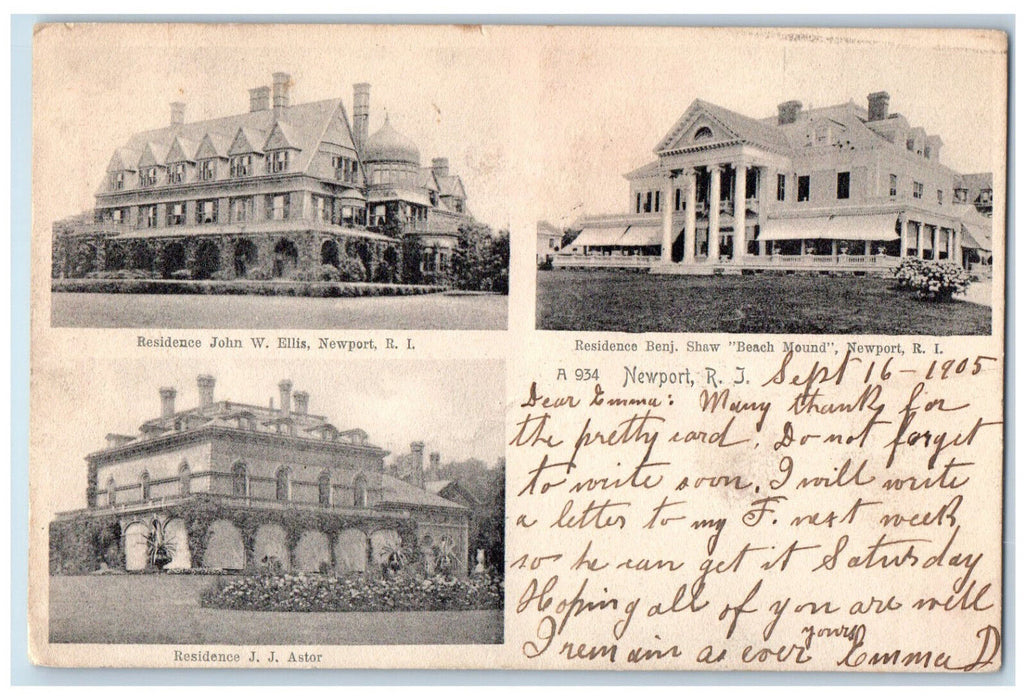 Residence John W. Ellis, Newport, R. I.
Residence Benj. Shaw "Beach Mound", Newport, R. I.
Residence J. J. Astor
A 934 Newport, R. I. Sept 16 - 1905
Dear Emma: Many thanks for
the pretty card. Do not forget
to write soon. I will write
a letter to my F. next week,
so he can get it Saturday
Hoping all of you are well
I remain as ever yours Emma D